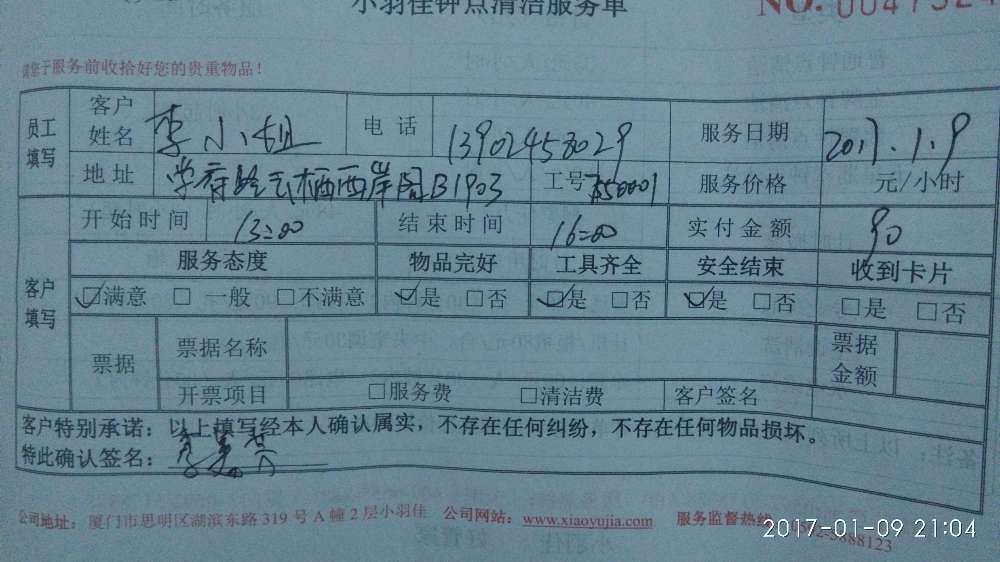 小羽佳钟点清洁服务单 NO. 0047524
请您于服务前收拾好您的贵重物品！
员工填写 客户姓名 李小姐 电话 13902458029 服务日期 2017.1.9
地址 B1903 工号 服务价格 元/小时
客户填写 开始时间 13:00 结束时间 16:00 实付金额 90
服务态度 物品完好 工具齐全 安全结束 收到卡片
☑满意 □一般 □不满意 ☑是 □否 ☑是 □否 ☑是 □否 □是 □否
票据 票据名称 票据金额
开票项目 □服务费 □清洁费 客户签名
客户特别承诺：以上填写经本人确认属实，不存在任何纠纷，不存在任何物品损坏。
特此确认签名：
公司地址：厦门市思明区湖滨东路 319 号 A 幢 2 层小羽佳 公司网站：www.xiaoyujia.com 服务监督热线
2017-01-09 21:04